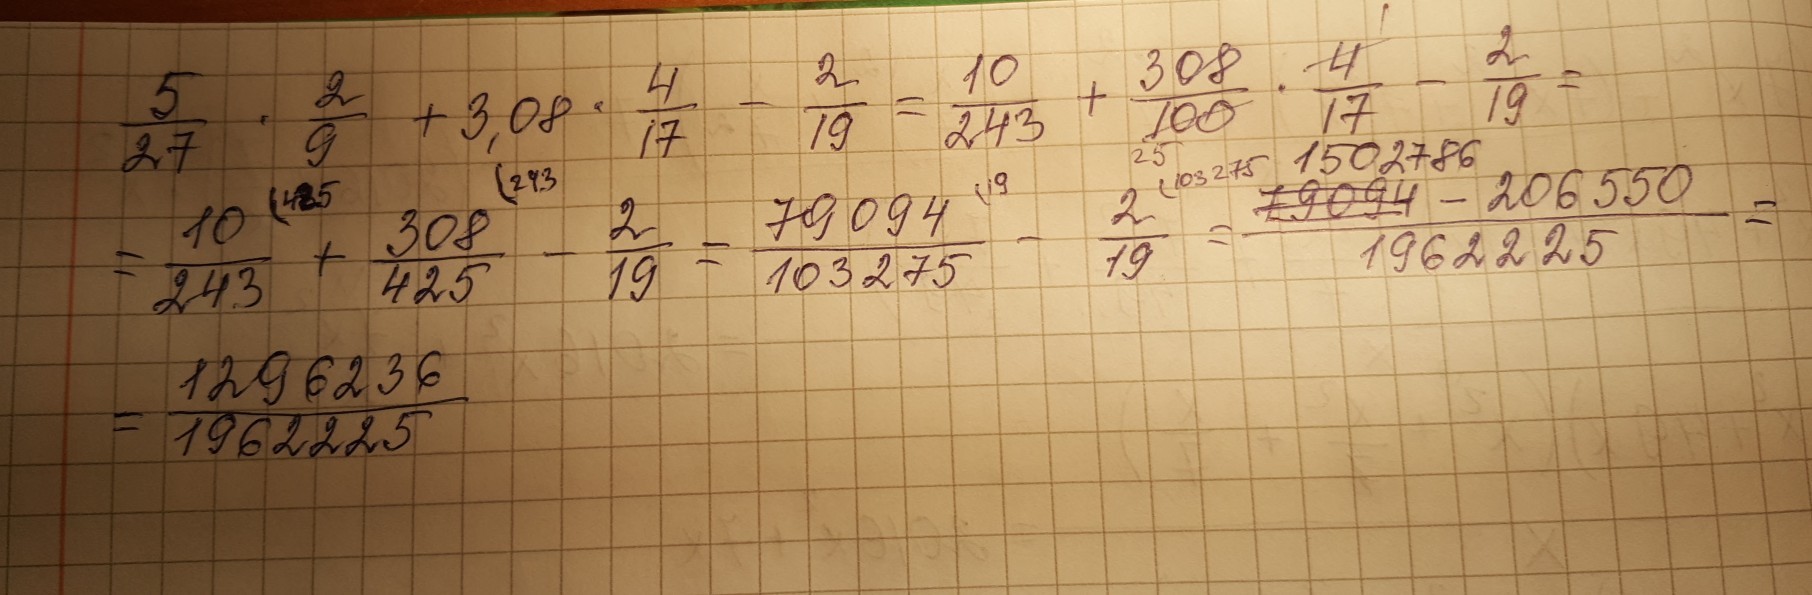 5/27 · 2/9 + 3,08 · 4/17 - 2/19 = 10/243 + 308/100 · 4/17 - 2/19 =
25 1
= 10/243 (425 + 308/425 (243 - 2/19 = 79094/103275 (19 - 2/19 (103275 = 1502786 79094 - 206550/1962225 =
= 1296236/1962225